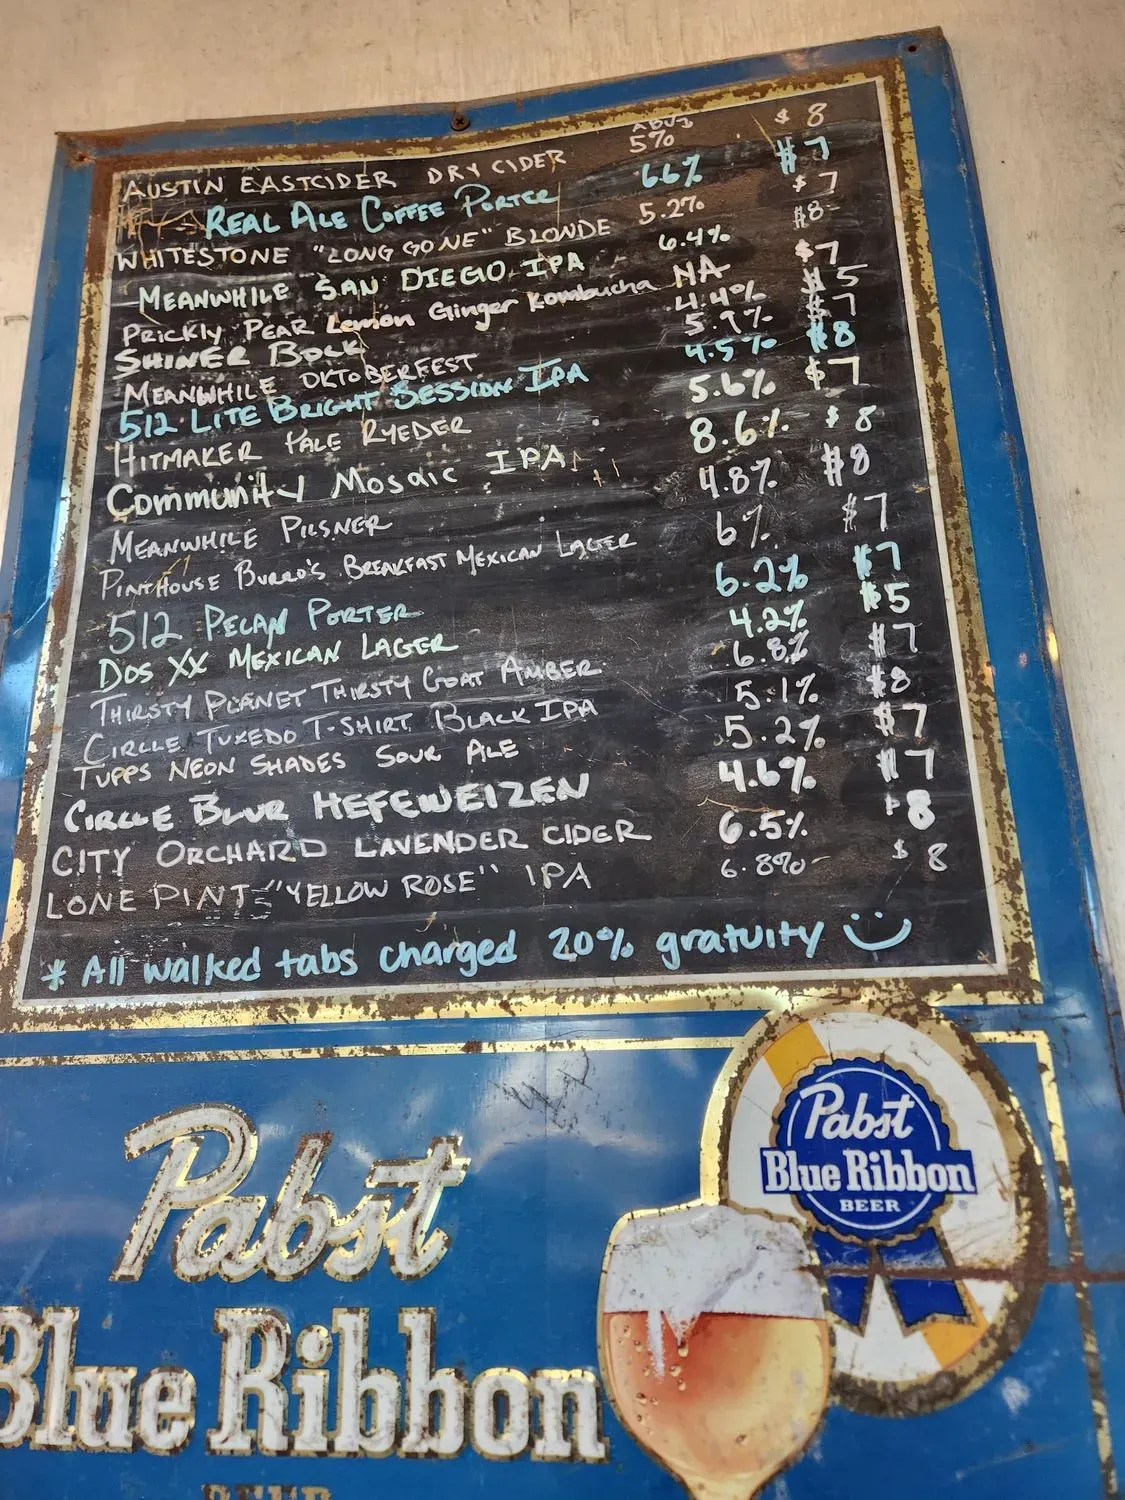 ABV↓
AUSTIN EASTCIDER DRY CIDER 5% $8
REAL ALE COFFEE PORTER 6.6% $7
WHITESTONE "LONG GONE" BLONDE 5.2% $7
MEANWHILE SAN DIEGO IPA 6.4% $8
PRICKLY PEAR Lemon Ginger Kombucha NA $7
SHINER BOCK 4.4% $5
MEANWHILE OKTOBERFEST 5.9% $7
512 LITE BRIGHT SESSION IPA 4.5% $8
HITMAKER PALE RYEDER 5.6% $7
Community Mosaic IPA 8.6% $8
MEANWHILE PILSNER 4.8% $8
PINTHOUSE BURRO'S BREAKFAST MEXICAN LAGER 6% $7
512 PECAN PORTER 6.2% $7
DOS XX MEXICAN LAGER 4.2% $5
THIRSTY PLANET THIRSTY GOAT AMBER 6.8% $7
CIRCLE TUXEDO T-SHIRT BLACK IPA 5.1% $8
TUPPS NEON SHADES SOUR ALE 5.2% $7
CIRCLE BLUR HEFEWEIZEN 4.6% $7
CITY ORCHARD LAVENDER CIDER 6.5% $8
LONE PINT "YELLOW ROSE" IPA 6.8% $8
* All walked tabs charged 20% gratuity
Pabst
Blue Ribbon
BEER
Pabst
Blue Ribbon
BEER